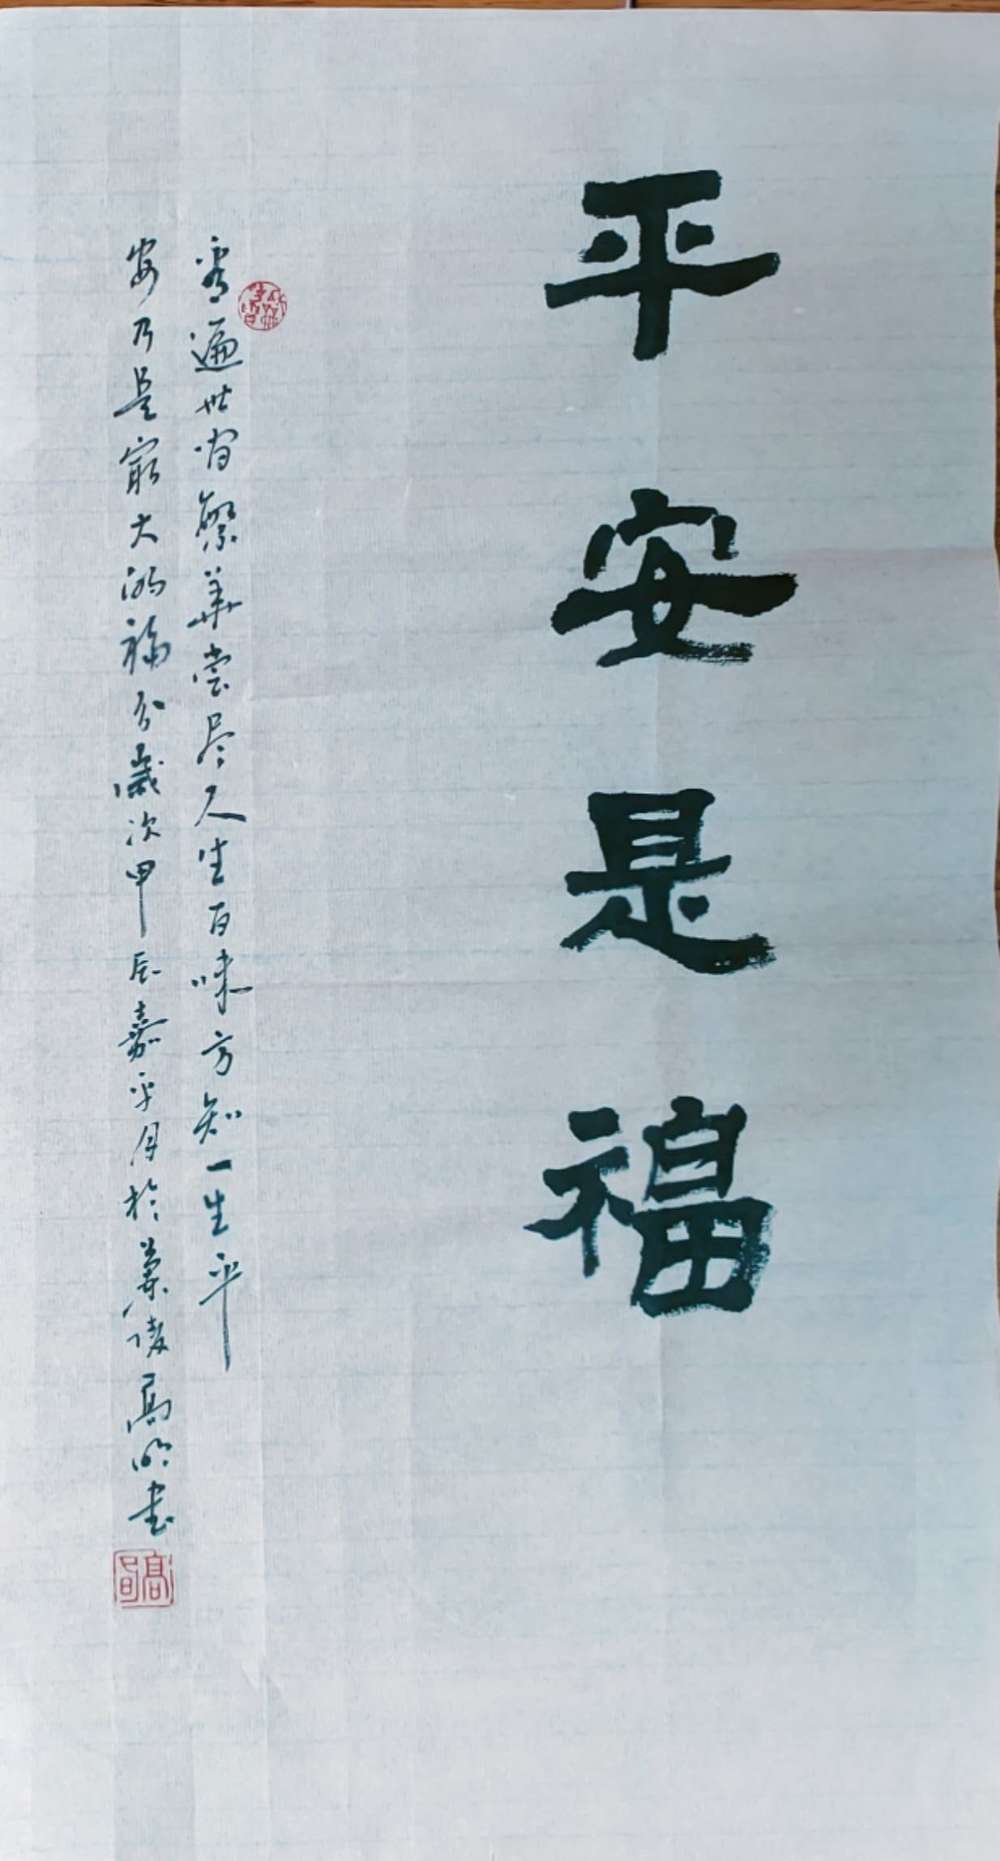 平安是福
看遍世间繁华尝尽人生百味方知一生平
安乃是最大的福分歲次甲辰嘉平月於兰陵高明书